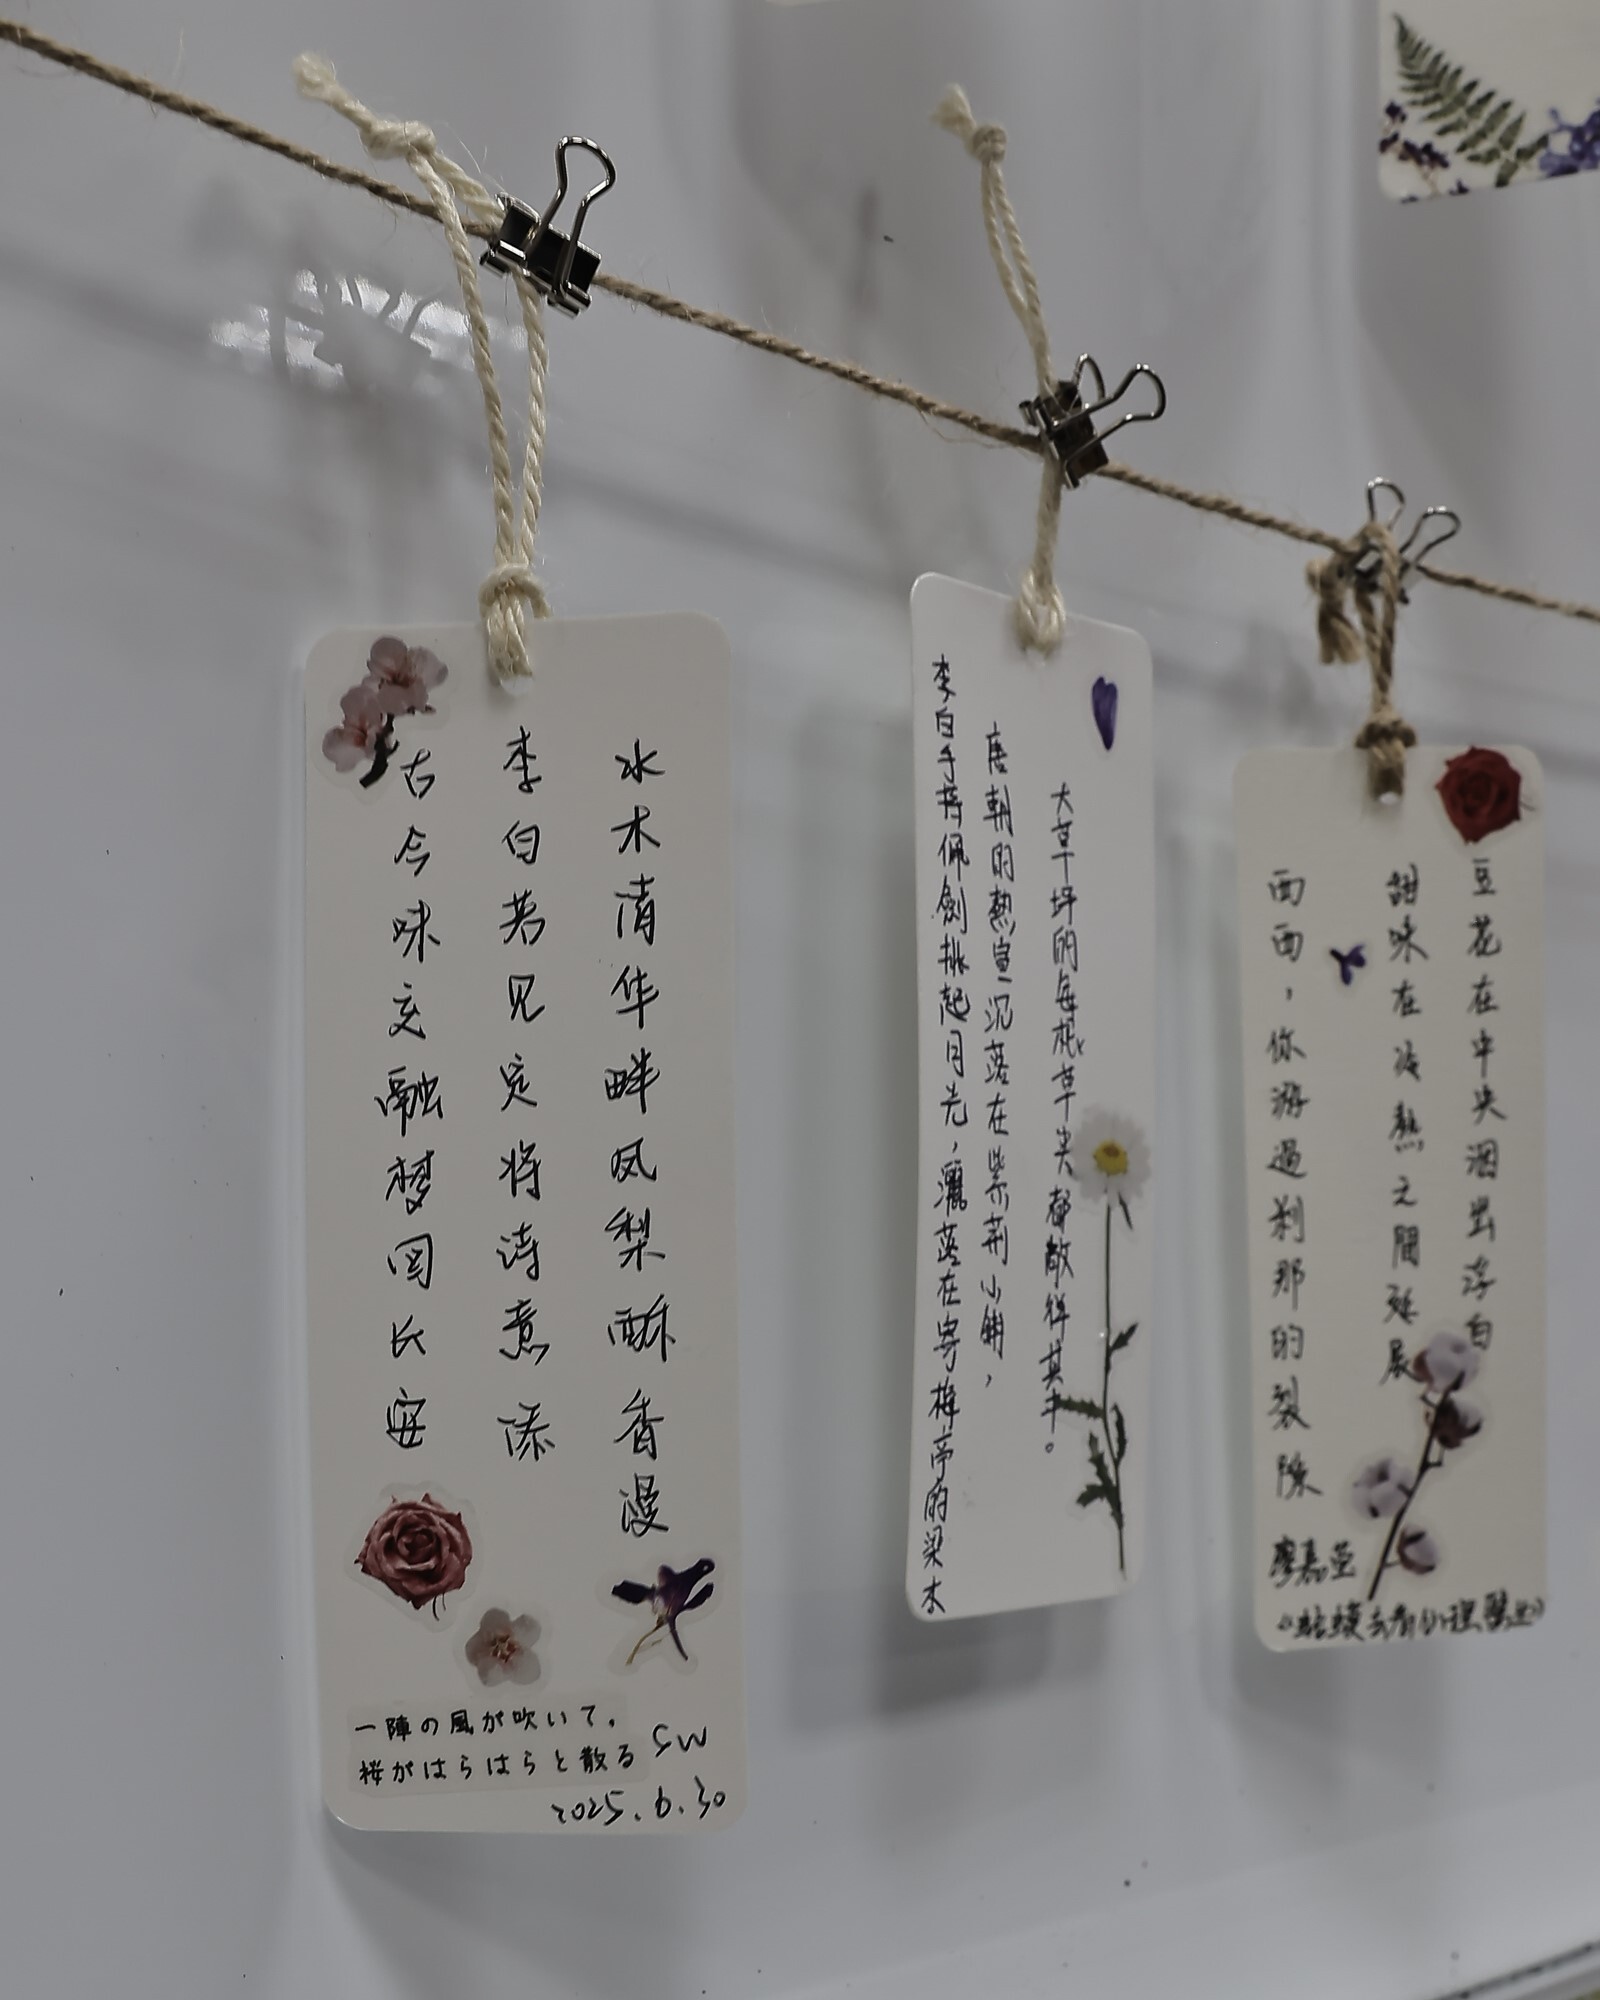 水木清华畔凤梨酥香漫
李白若见定将诗意添
古今味交融梦回长安
一陣の風が吹いて。
桜がはらはらと散る
SW
2025.6.30
大草坪的每根草尖都散徉其中。
唐朝的熱宣沉落在紫荊小鋪，
李白手持佩劍挑起月光，灑落在寄梅亭的梁木
豆花在中央洇出浮白
甜味在冷熱之間延展
面面，你游過剎那的裂隙
廖嘉